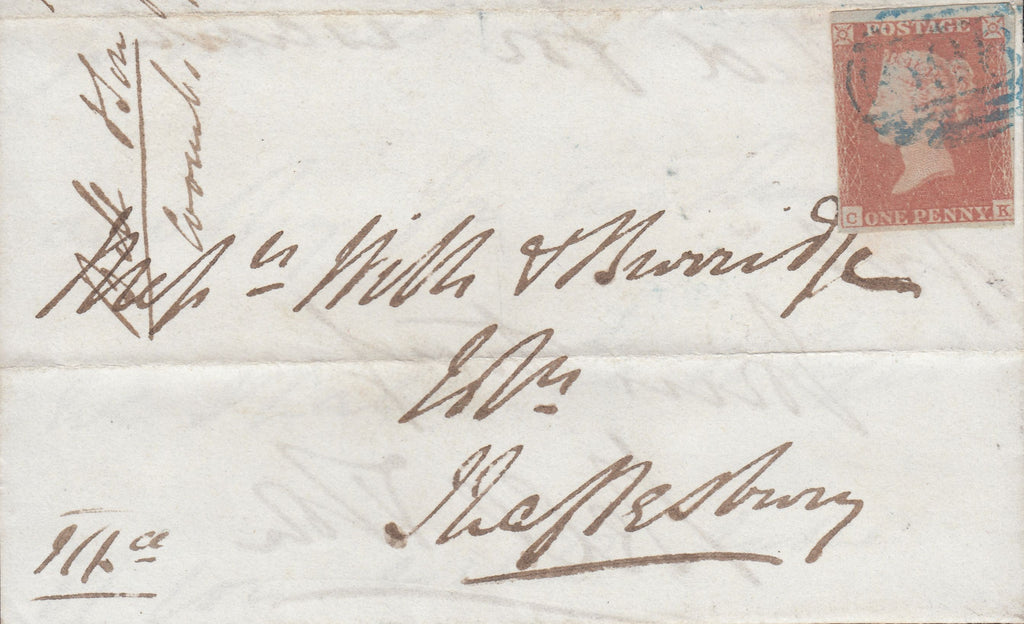 POSTAGE
C ONE PENNY K
& Son
Coombs
Messrs Wilts & Burridge
Esqrs
Shaftesbury